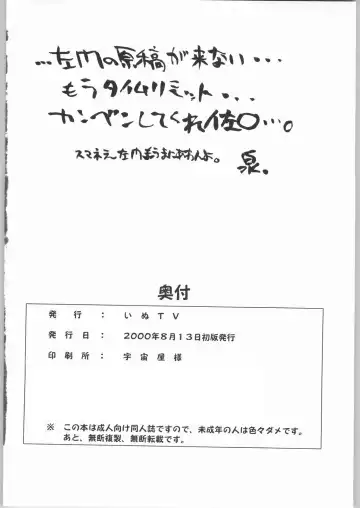 …左内の原稿が来ない・・・
もうタイムリミット・・・
カンベンしてくれ佐〇…。
スマネェ左内まうまにあわんよ。
泉。
奥付
発行 : いぬTV
発行日 : 2000年8月13日初版発行
印刷所 : 宇宙屋様
※ この本は成人向け同人誌ですので、未成年の人は色々ダメです。
あと、無断複製、無断転載です。